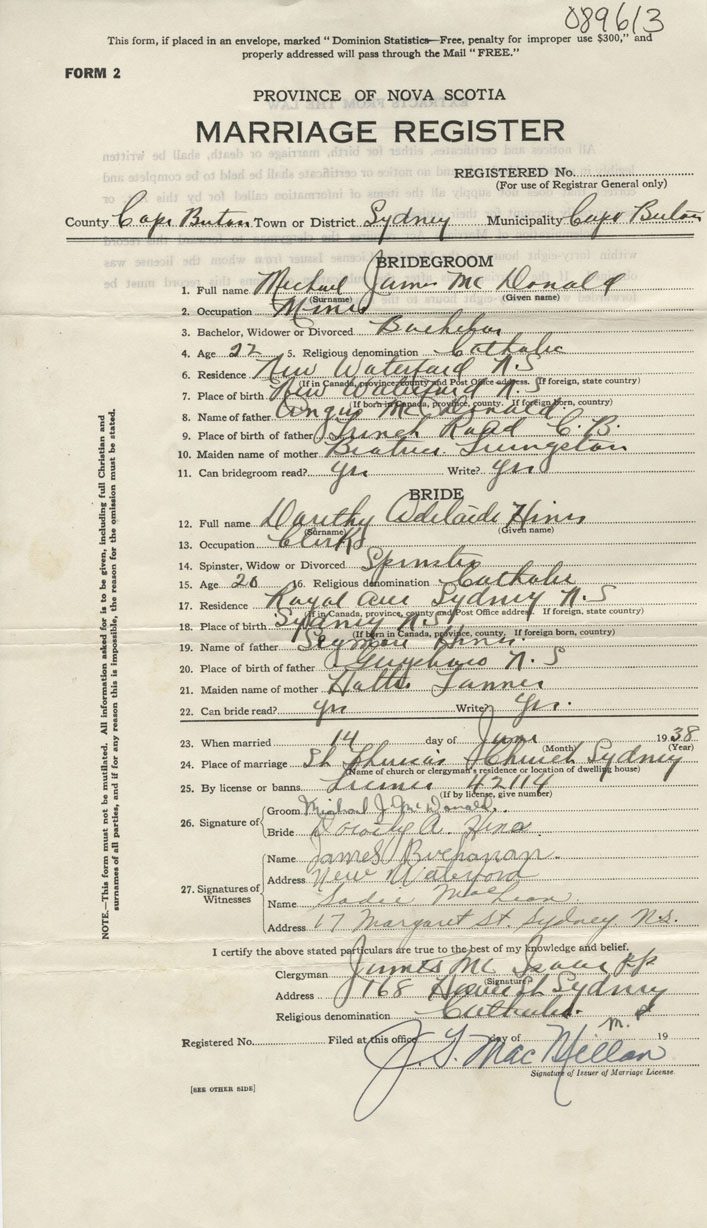 089613
This form, if placed in an envelope, marked "Dominion Statistics—Free, penalty for improper use $300," and
properly addressed will pass through the Mail "FREE."
FORM 2
PROVINCE OF NOVA SCOTIA
MARRIAGE REGISTER
REGISTERED No.
(For use of Registrar General only)
County Cape Breton Town or District Sydney Municipality Cape Breton
BRIDEGROOM
1. Full name Michael James Mc Donald
(Surname) (Given name)
2. Occupation Miner
3. Bachelor, Widower or Divorced Bachelor
4. Age 22 5. Religious denomination Catholic
6. Residence New Waterford N.S
(If in Canada, province, county and Post Office address. If foreign, state country)
7. Place of birth New Waterford N.S
(If born in Canada, province, county. If foreign born, country)
8. Name of father Angus Mc Donald
9. Place of birth of father French Road C.B.
10. Maiden name of mother Beatrice Livingston
11. Can bridegroom read? yes Write? yes
BRIDE
12. Full name Dorothy Adelaide Hines
(Surname) (Given name)
13. Occupation Clerk
14. Spinster, Widow or Divorced Spinster
15. Age 20 16. Religious denomination Catholic
17. Residence Royal Ave Sydney N.S
(If in Canada, province, county and Post Office address. If foreign, state country)
18. Place of birth Sydney N.S
(If born in Canada, province, county. If foreign born, country)
19. Name of father Seymour Hines
20. Place of birth of father Guysboro N.S
21. Maiden name of mother Hattie Tanner
22. Can bride read? yes Write? yes.
23. When married 14 day of June 1938
(Month) (Year)
24. Place of marriage St Theresa's Church Sydney
(Name of church or clergyman's residence or location of dwelling house)
25. By license or banns License 42114
(If by license, give number)
26. Signature of
Groom Michael J. McDonald.
Bride Dorothy A. Hines
27. Signatures of Witnesses
Name James Buchanan.
Address New Waterford
Name Sadie MacLean
Address 17 Margaret St. Sydney N.S.
I certify the above stated particulars are true to the best of my knowledge and belief.
Clergyman James Mc Isaac pp
(Signature)
Address 168 St Sydney
Religious denomination Catholic.
Registered No. Filed at this office day of 19
J. S. MacMillan
Signature of Issuer of Marriage License
[SEE OTHER SIDE]
NOTE.—This form must not be mutilated. All information asked for is to be given, including full Christian and
surnames of all parties, and if for any reason this is impossible, the reason for the omission must be stated.